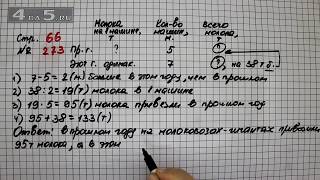 4a5.RU
Стр. 66
№ 273
Молока на 1 машине, т
Кол-во машин, м.
Всего молока, т
Пр. г. ? 5 ?
Этот г. одинак. 7 ?, на 38 т б.
1) 7-5=2 (м) больше в этом году, чем в прошлом
2) 38:2=19(т) молока в 1 машине
3) 19·5=95(т) молока привезли в прошлом году
4) 95+38=133(т)
Ответ: в прошлом году на молоковозах-гигантах привезли
95т молока, а в этом